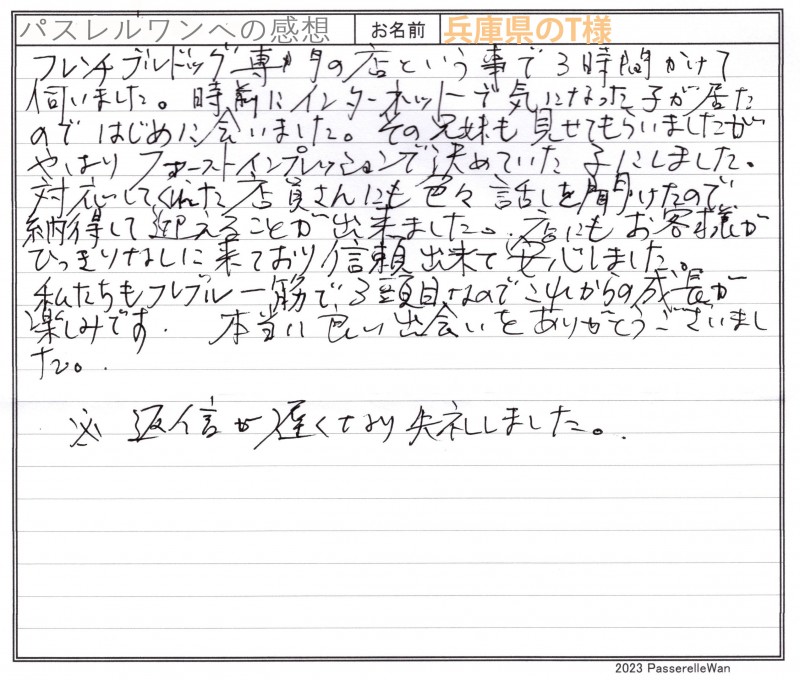 パスレルワンへの感想 お名前 兵庫県のT様
フレンチブルドッグ専門の店という事で3時間かけて
伺いました。時前にインターネットで気になった子が居た
のではじめに会いました。その兄妹も見せてもらいましたが
やはりファーストインプレッションで決めていた子にしました。
対応してくれた店員さんにも色々話しを聞けたので
納得して迎えることが出来ました。店にもお客様が
ひっきりなしに来ており信頼出来て安心しました。
私たちもフレブル一筋で3頭目なのでこれからの成長が
楽しみです。本当に良い出会いをありがとうございまし
た。
※返信が遅くなり失礼しました。
2023 PasserelleWan